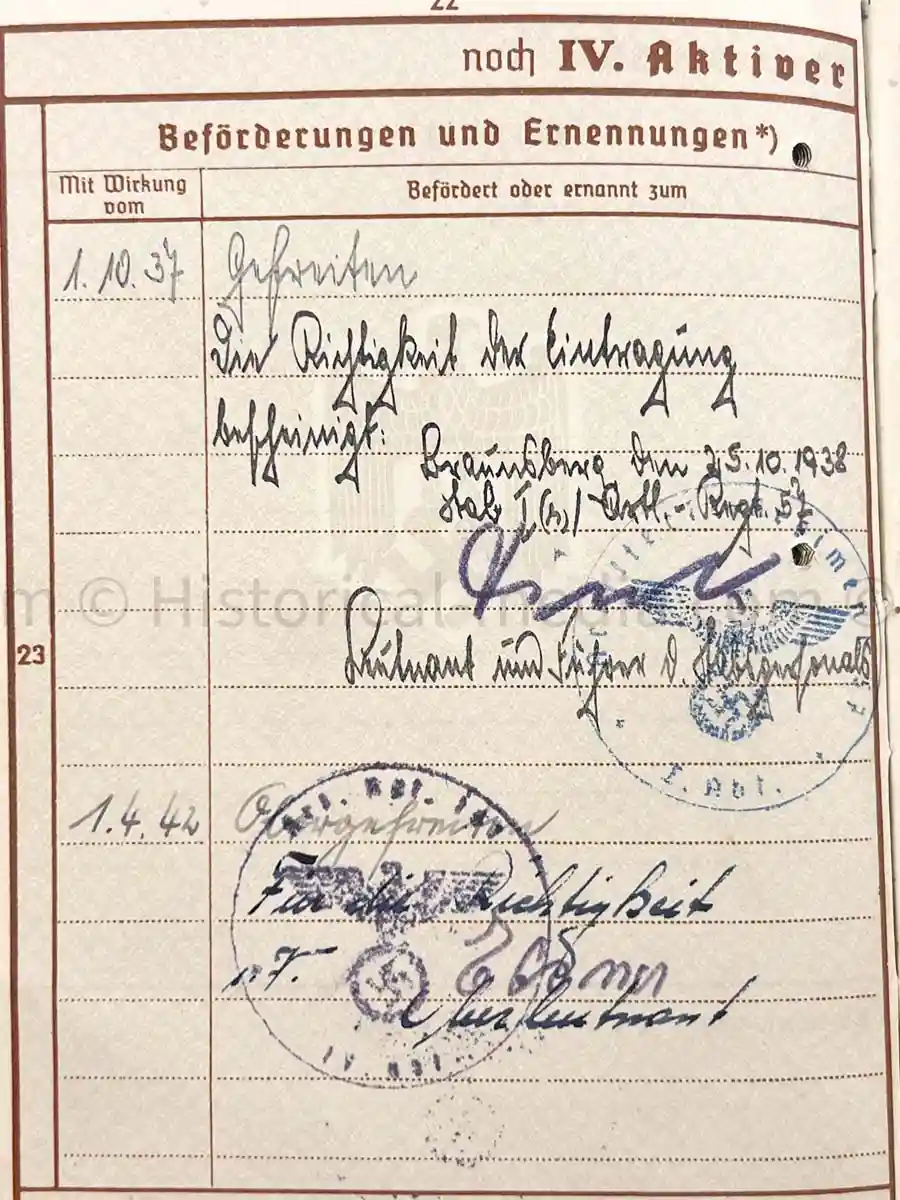 22
noch IV. Aktiver
Beförderungen und Ernennungen*)
Mit Wirkung vom
Befördert oder ernannt zum
1.10.37 Gefreiten
Die Richtigkeit der Eintragung
bescheinigt:
Braunsberg, den 25.10.1938
Stab I /Artl.-Regt. 57
m © Historical-media.com ©
23
Leutnant und Führer d. Stabspersonals
I. Abt.
1.4.42 Obergefreiten
Für die Richtigkeit
Oberleutnant